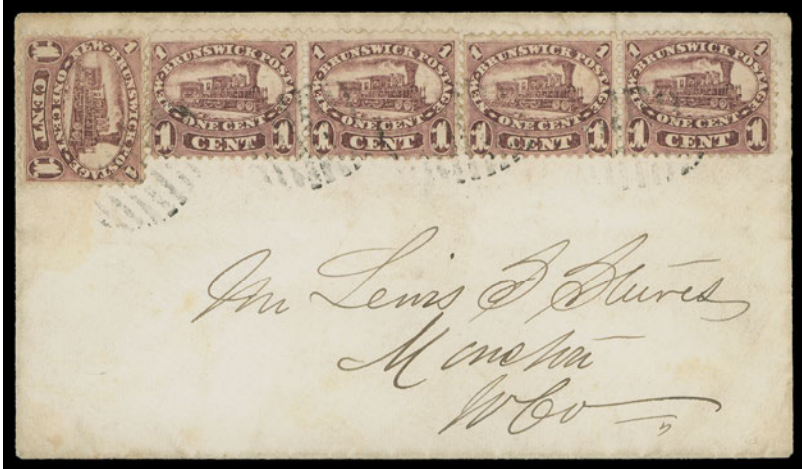 1 NEW-BRUNSWICK POSTAGE 1
ONE CENT
1 CENT 1
1 NEW-BRUNSWICK POSTAGE 1
ONE CENT
1 CENT 1
1 NEW-BRUNSWICK POSTAGE 1
ONE CENT
1 CENT 1
1 NEW-BRUNSWICK POSTAGE 1
ONE CENT
1 CENT 1
1 NEW-BRUNSWICK POSTAGE 1
ONE CENT
1 CENT 1
Mr Lewis S Steeves
W Co